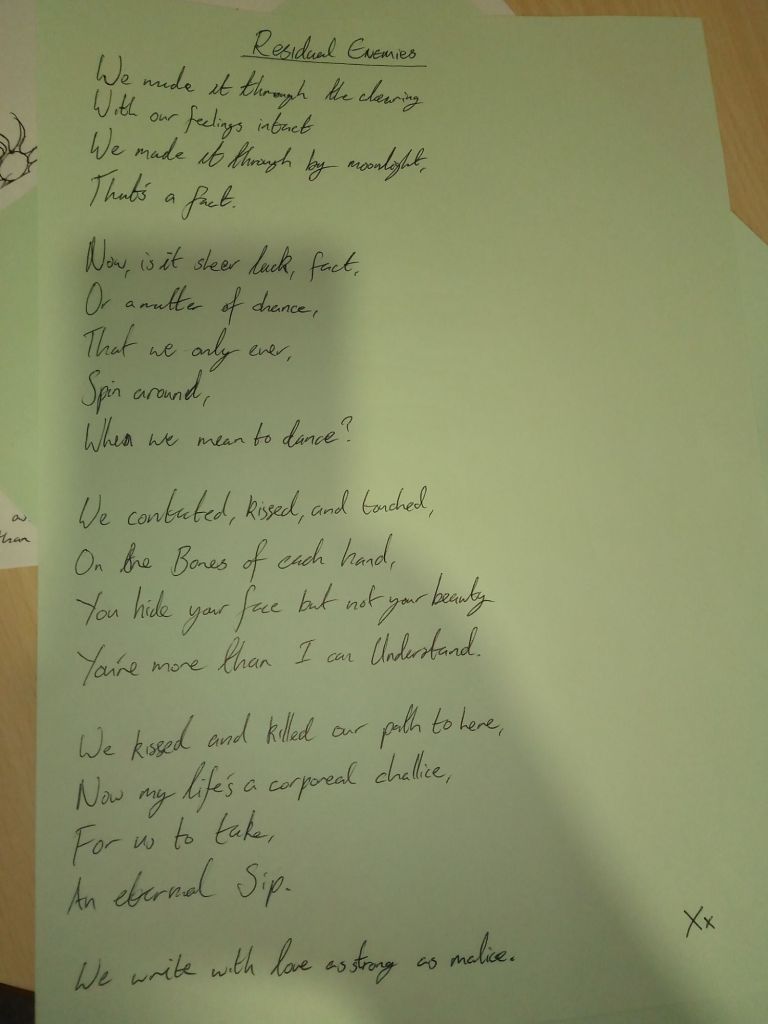 Residual Enemies
We made it through the clearing
With our feelings intact
We made it through by moonlight,
That's a fact.
Now, is it sheer luck, fact,
Or a matter of chance,
That we only ever,
Spin around,
When we mean to dance?
We contacted, kissed, and touched,
On the Bones of each hand,
You hide your face but not your beauty
You're more than I can Understand.
We kissed and killed our path to here,
Now my life's a corporeal challice,
For us to take,
An eternal Sip.
We write with love as strong as malice.
Xx
than